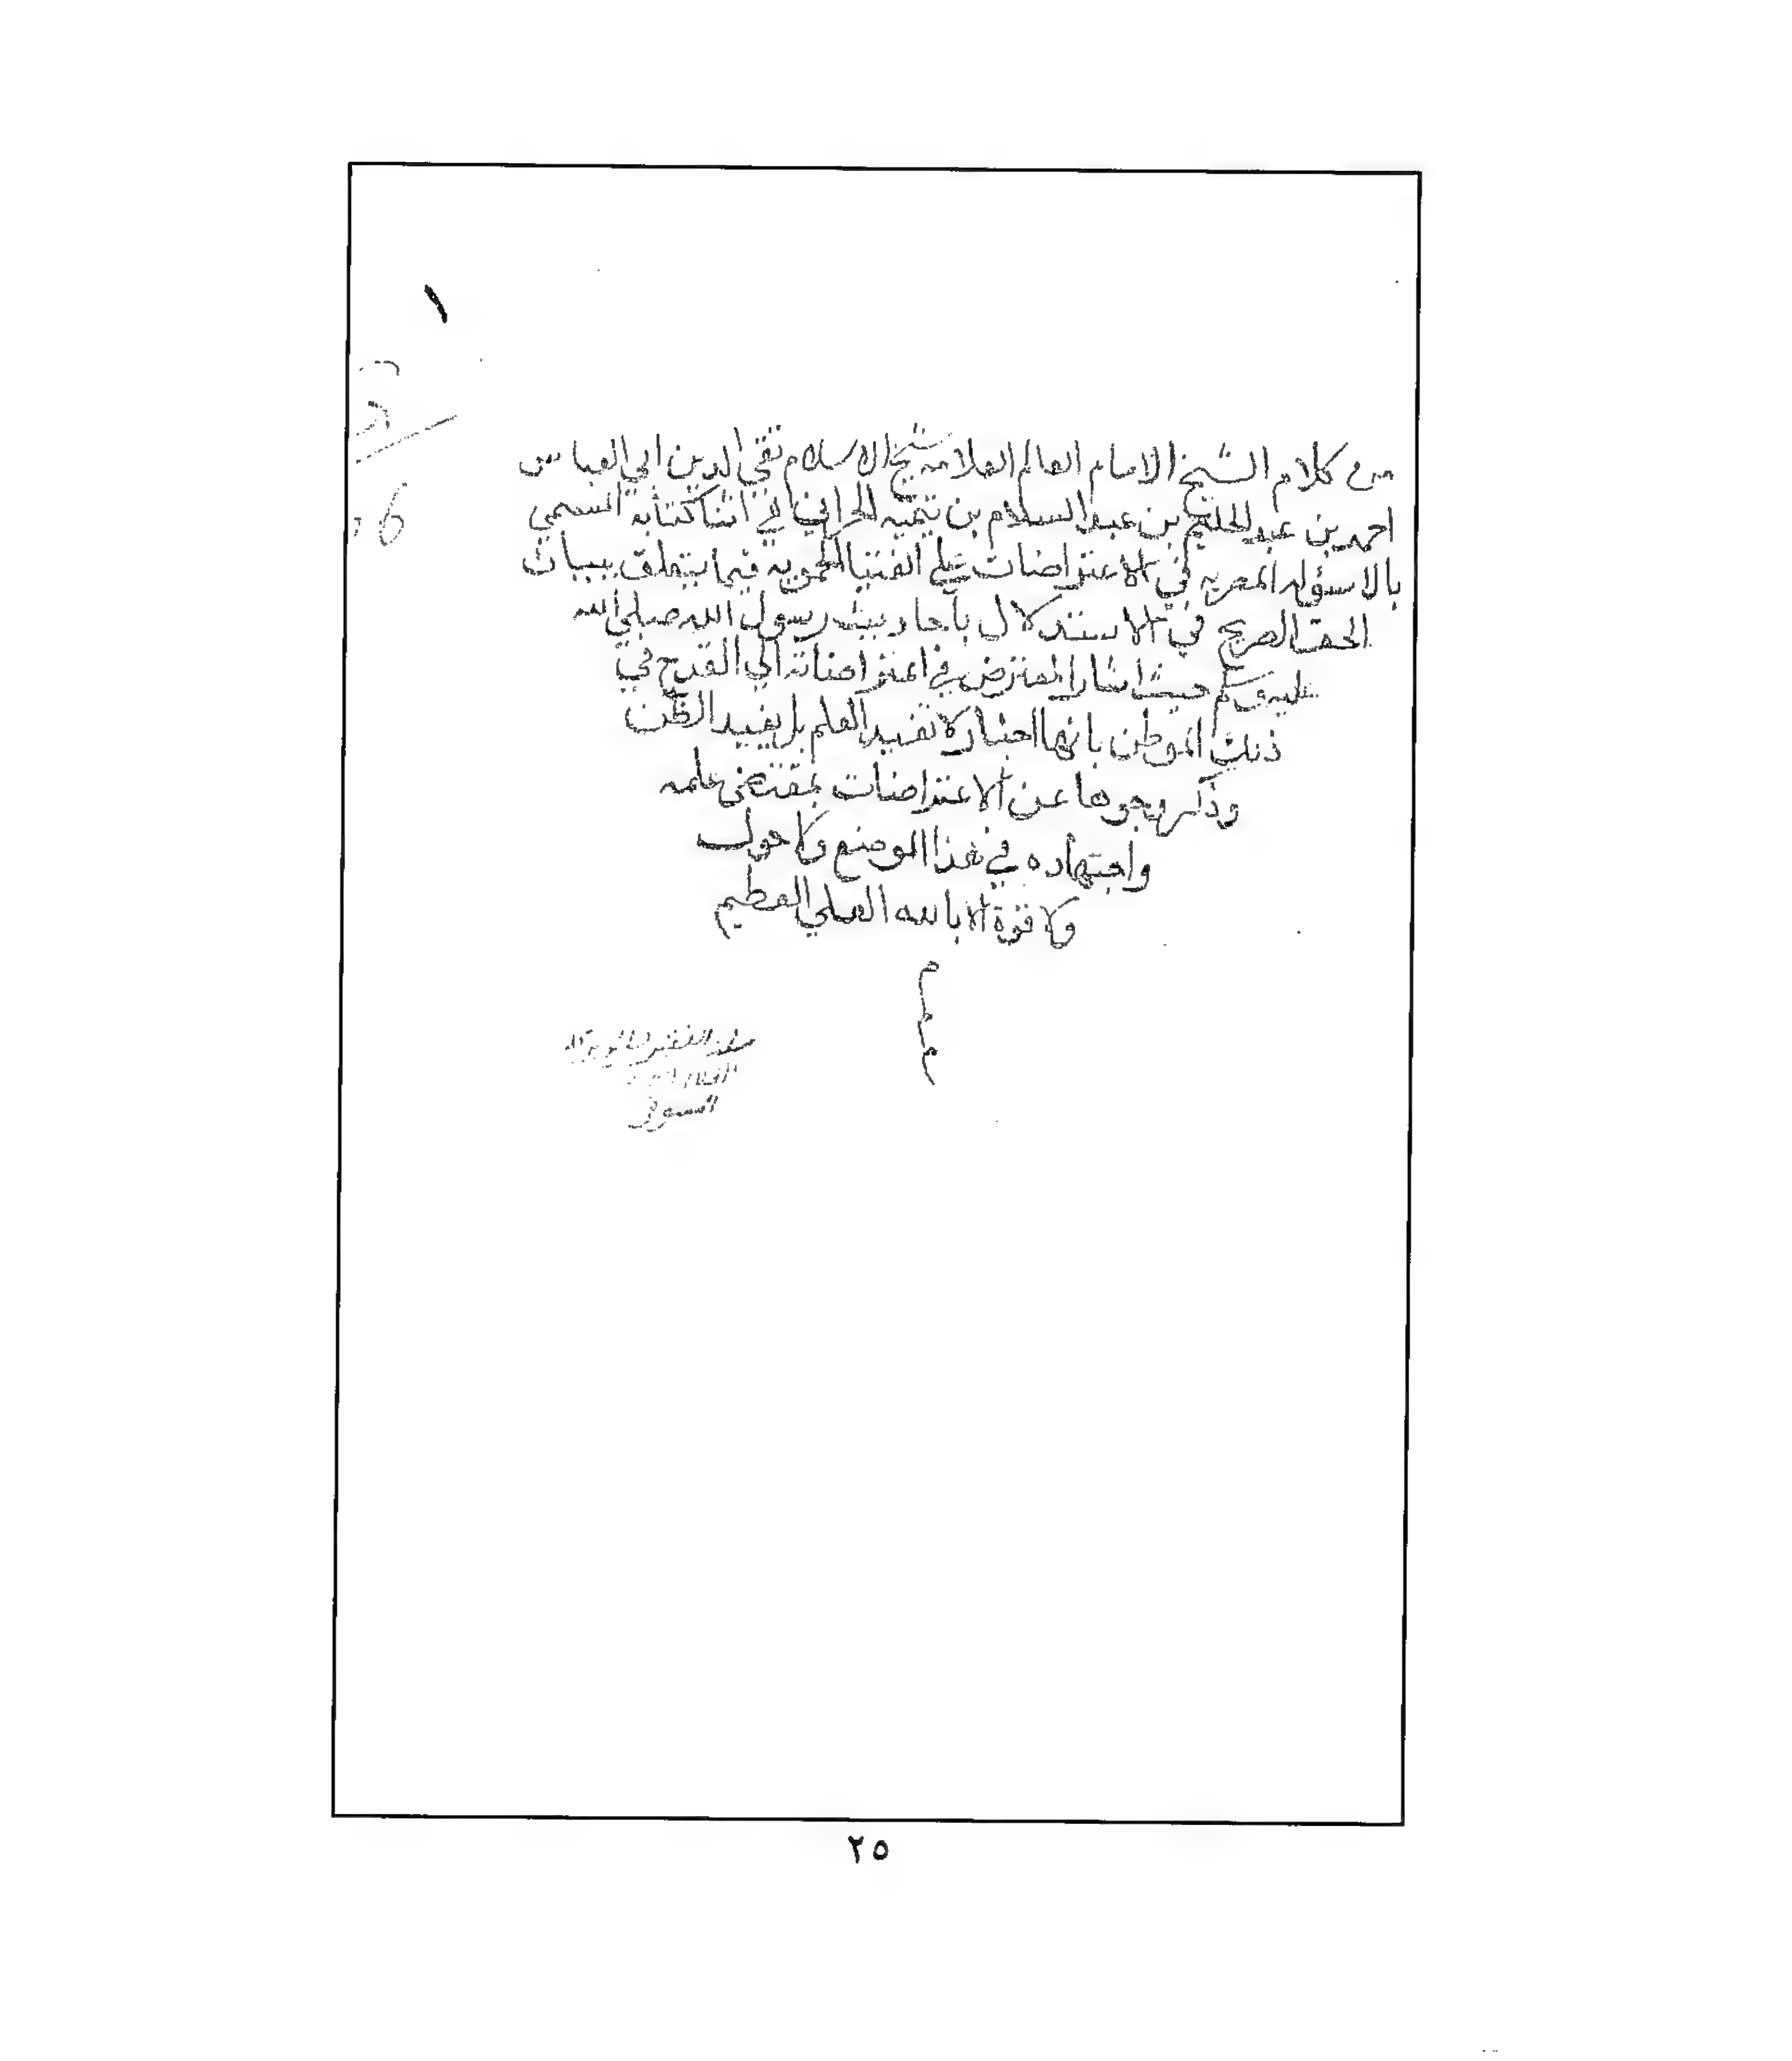 ١
من كلام الشيخ الامام العالم العلامه شيخ الاسلام تقي الدين ابي العباس
احمد بن عبد الحليم بن عبد السلام بن تيميه الحراني في اثنا كتابه المسمي
بالاسؤله المصريه في الاعتراضات علي الفتيا الحمويه فيما يتعلق ببيان
الحق الصريح في الاستدلال بأحاديث رسول الله صلي الله
عليه وسلم حيث اشار المعترض في اعتراضاته الي القدح في
ذلك الموطن بانها اخبار لا تفيد العلم بل يفيد الظن
وذكر وجوها عن الاعتراضات بمقتضى علمه
واجتهاده في هذا الموضع ولا حول
ولا قوة الا بالله العلي العظيم
٢٥